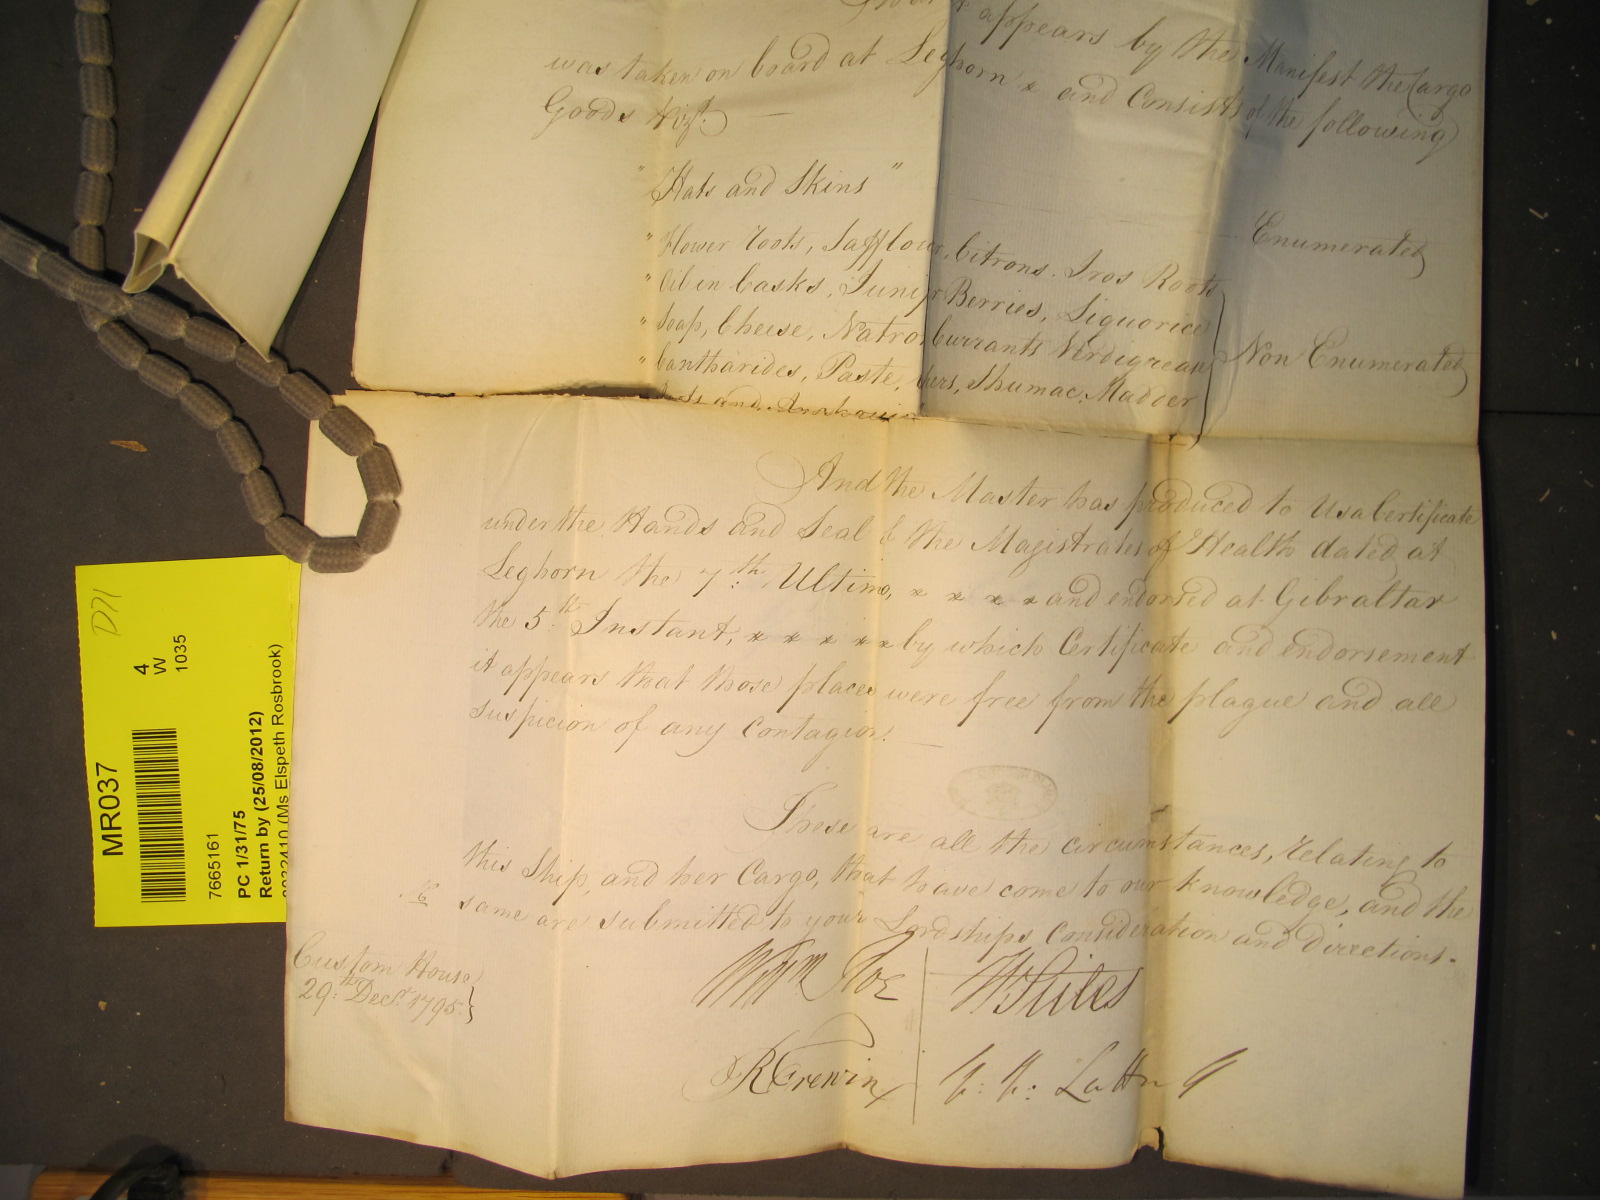 appears by the Manifest the Cargo
was taken on board at Leghorn x and Consists of the following
Goods Vizt.
" Hats and Skins "
Enumerated
" Flower Roots, Safflour, Citrons. Iros Roots
" Oil in Casks, Junipr Berries, Liquorice
" Soap, Cheese, Natron Currants Verdigrean
" Cantharides, Paste, Shumac, Madder
Non Enumerated
and
And the Master has produced to Us a Certificate
under the Hands and Seal of the Magistrates of Health dated at
Leghorn the 7th. Ultimo, x x x x and endorsed at Gibraltar
the 5th. Instant, x x x x x by which Certificate and endorsement
it appears that those places were free from the plague and all
suspicion of any contagion.
These are all the circumstances, relating to
this Ship, and her Cargo, that have come to our knowledge, and the
same are submitted to your Lordships Consideration and Directions.
Custom House
29th. Decr. 1795.
Wm Roe
W Stiles
R Frewin
D71
MR037
4
W
1035
7665161
PC 1/31/75
Return by (25/08/2012)
(Ms Elspeth Rosbrook)